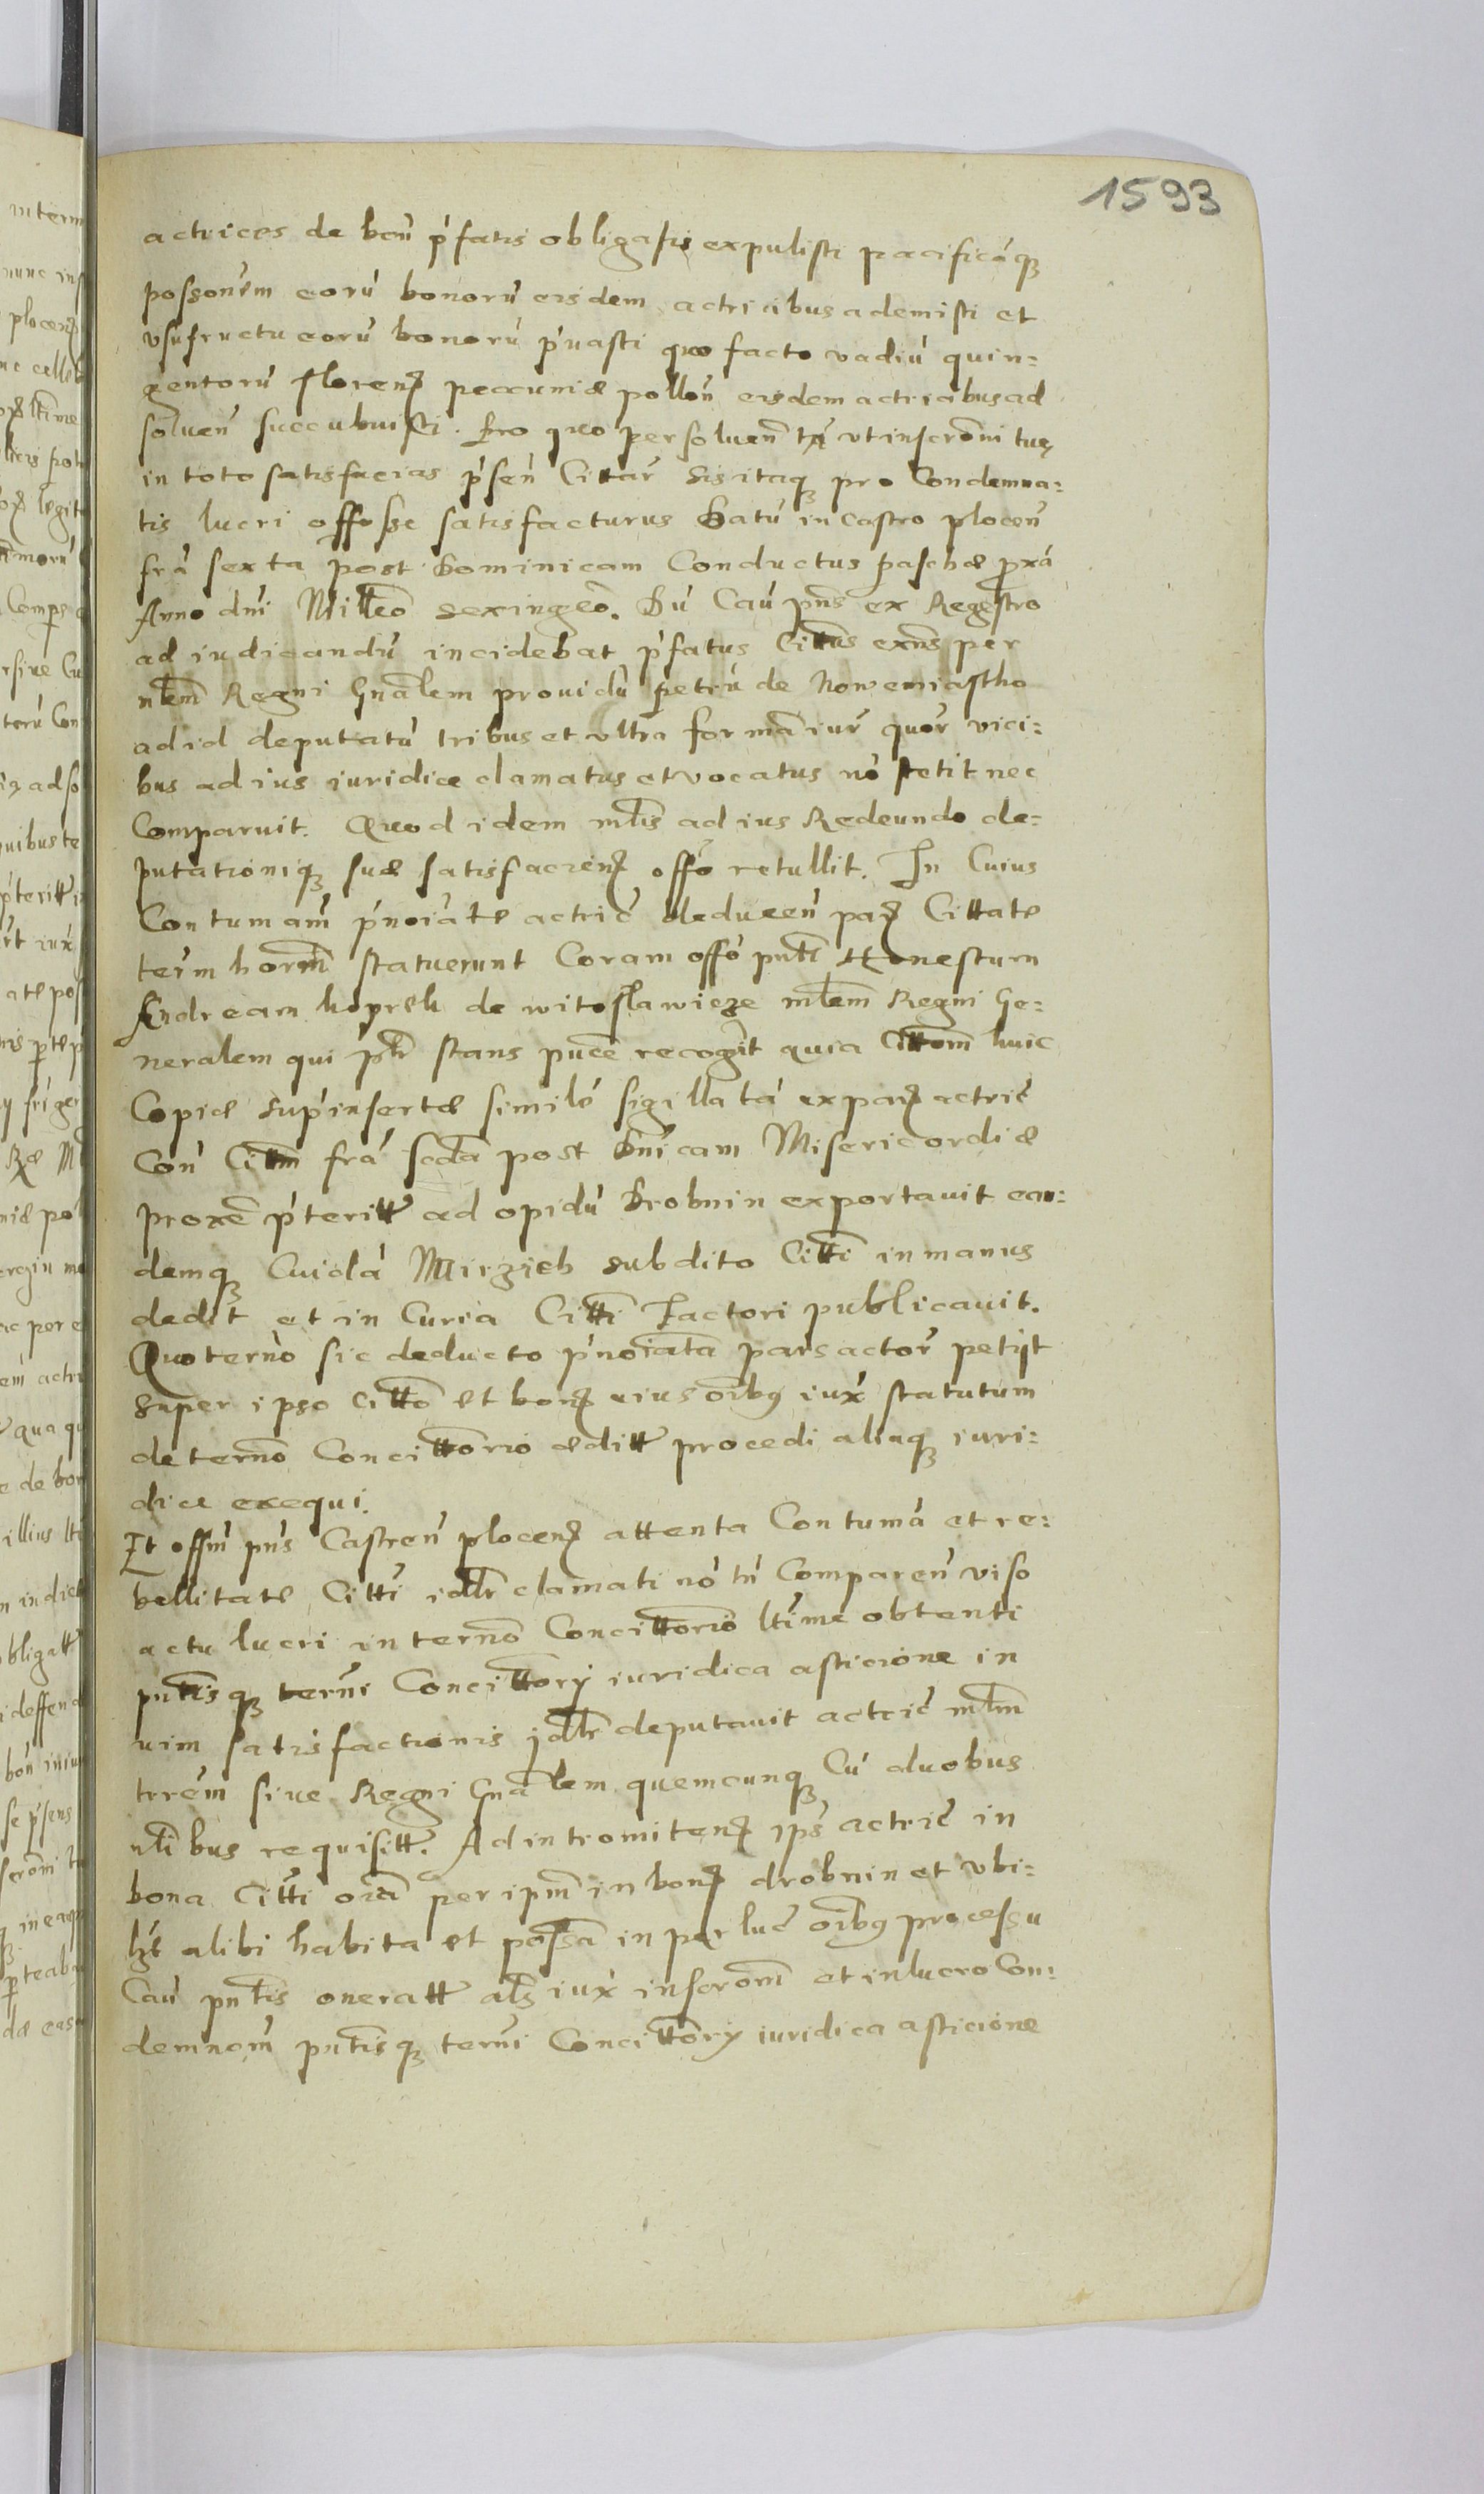 1593
actrices de bon p̍fatis obligatis expulisti pacificāq3
possonem eorū bonorū eisdem actricibus ademisti et
vsufructu eorū bonorū p̍uasti quo facto vadiū quin:
gentorū floren pecuniæ pollōn eisdem actricibus ad
soluen̄ succubuisti. Pro quo persoluen̄ vt inscrōni tuę
in toto satisfacias p̍sen̄ Cittar̄ sis itaq3 pro Condemna:
tis lucri offosse satisfacturus Datū in castro plocen̄
fr̄a sexta post Dominicam Conductus paschæ prx̄a
Anno dn̄i Millēo sexingeō. Dū Cāu pn̄s ex Regestro
ad iudicandū incidebat p̍fatus Cittūs exn̄s per
mlem Regni Gn̄alem prouidū petrū de Nowemiastho
ad id deputatū tribus et vltra forma iur̄ quor̄ vici:
bus ad ius iuridice clamatus et vocatus nō stetit nec
Comparuit. Quod idem mlīs ad ius Redeundo de:
putationiq3 suæ satisfacien offō retullit. In Cuius
Contumam̄ p̍noīatæ actric̄ deducen̄ par Cittatæ
term̄ horm̄ statuerunt Coram offō pn̄ti Honestum
Andream koprek de witosławicze mlem Regni Ge:
neralem qui ibi stans puce recogn̄t quia Cittom̄ huic
Copiæ sup̍insertæ similē sigillatā ex par actric̄
Con̄ Cittm̄ fr̄a scda post Dn̄icam Misericordiæ
proxē p̍teritt ad opidū Drobnin exportauit ean:
demq3 Cuidā Mirzieh subdito Citti in manus
dedit et in Curia Citti Factori publicauit.
Quo ternō sic deducto p̍noīata pars actor̄ petijt
super ipso cittō et bon eius oībus iux̄ statutum
de ternō Concittorio æditt procedi aliaq3 iuri:
dice exequi.
Et offm̄ pn̄s Castren̄ plocen attenta Contumā et re:
bellitatæ Citti idlr clamati nō tn̄ Comparen̄ viso
actu lucri in ternō Concittorio ltime obtenti
pn̄tisq3 tern̄i Concittorij iuridica asticione in
uim satisfactionis idlr deputauit actric̄ mlm
trrem siue Regni Gn̄alem quemcunq3 Cū duobus
nlibus requisitt. Ad intromiten ips̄ actric̄ in
bona Citti oīa per ipm̄ in bon drobnin et vbi:
alibi habita et possa in par luc̄ oībus processu
Cāu pn̄tis oneratt als iux̄ inscrōm̄ et in lucro Con:
demnom̄ pn̄tisq3 tern̄i Concittorij iuridica asticione